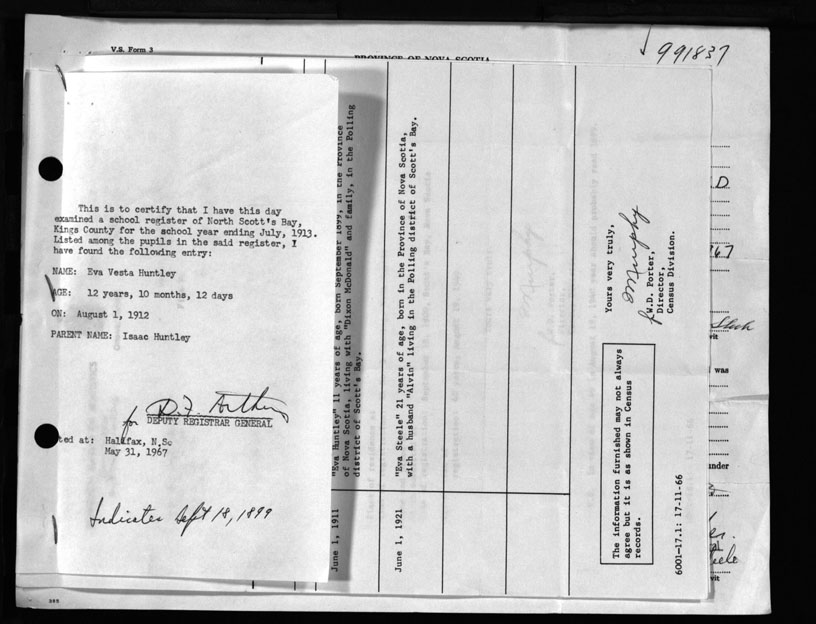 V.S. Form 3
PROVINCE OF NOVA SCOTIA
991837
This is to certify that I have this day
examined a school register of North Scott's Bay,
Kings County for the school year ending July, 1913.
Listed among the pupils in the said register, I
have found the following entry:
NAME: Eva Vesta Huntley
AGE: 12 years, 10 months, 12 days
ON: August 1, 1912
PARENT NAME: Isaac Huntley
for
DEPUTY REGISTRAR GENERAL
ted at: Halifax, N.S.
May 31, 1967
Indicates Sept 18, 1899
June 1, 1911
"Eva Huntley" 11 years of age, born September 1899, in the Province
of Nova Scotia, living with "Dixon McDonald" and family, in the Polling
district of Scott's Bay.
June 1, 1921
"Eva Steele" 21 years of age, born in the Province of Nova Scotia,
with a husband "Alvin" living in the Polling district of Scott's Bay.
Yours very truly,
W.D. Porter,
Director,
Census Division.
The information furnished may not always
agree but it is as shown in Census
records.
6001-17.1: 17-11-66
D
67
vit
was
under
eele
vit